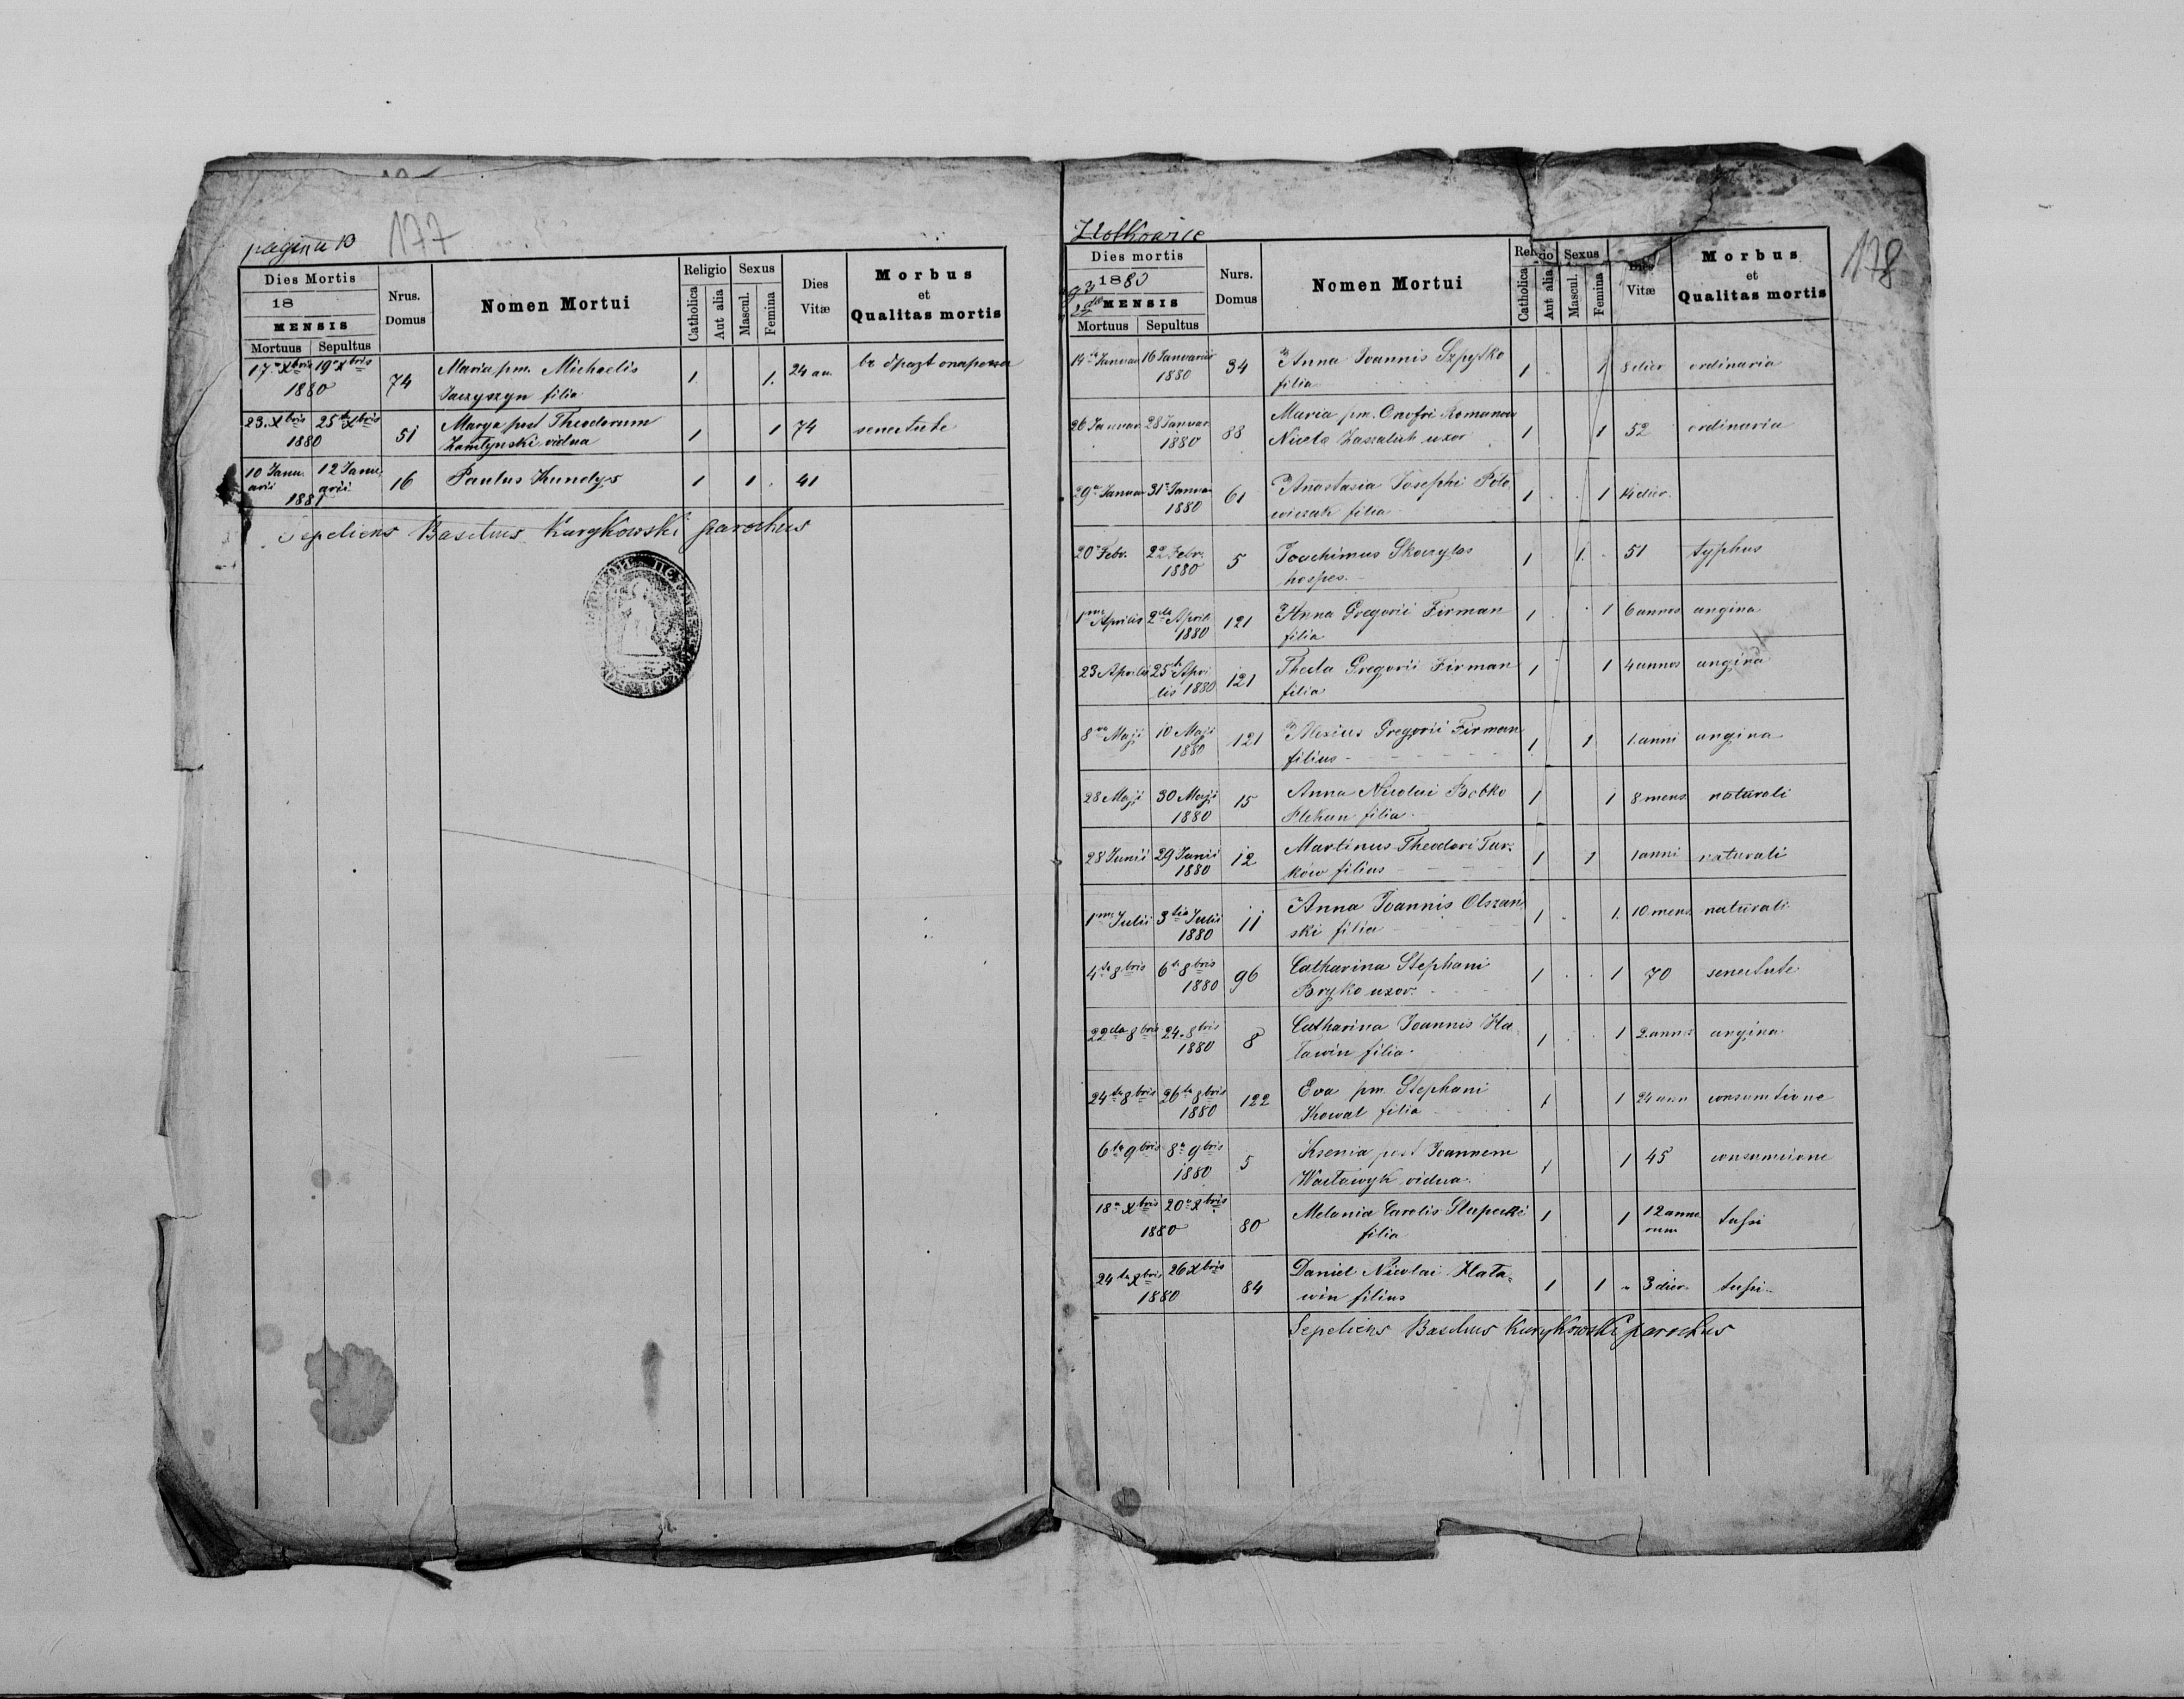 pagina 13
177
Dies Mortis
18
MENSIS
Mortuus Sepultus
Nrus. Domus
Nomen Mortui
Religio
Catholica
Aut alia
Sexus
Mascul.
Femina
Dies Vitæ
Morbus
et
Qualitas mortis
17a Xbris 19a Xbris 1880 74 Maria pm. Michaelis 1 1. 24 an.
Jaczyszyn filia
23. Xbris 25ta Xbris 1880 51 Marya post Theodorum 1 1 74 senectute
vidua
10 Januarii 12 Januarii 1881 16 Paulus Kundys 1 1 41
Sepeliens Basilius Kurykowski parochus
178
Dies mortis
1880
MENSIS
Mortuus Sepultus
Nurs. Domus
Nomen Mortui
Religio
Catholica
Aut alia
Sexus
Mascul.
Femina
Dies Vitæ
Morbus
et
Qualitas mortis
14ta Januar 16 Januarii 1880 34 Anna Joannis Szpytko 1 1 8 dier ordinaria
filia
26 Januar 28 Januar 1880 88 Maria pm. Onofri Romanow 1 1 52 ordinaria
uxor
29a Januar 31a Januar 1880 61 Anastasia Josephi 1 1 14 dier.
filia
20a Febr. 22 Febr. 1880 5 Joachimus Skoczylas 1 1. 51 typhus
hospes.
1ma Aprilis 2da April 1880 121 Anna Gregorii Firman 1 1 6 annos angina
filia
23 Aprilis 25ta Aprilis 1880 121 Thecla Gregorii Firman 1 1 4 annos angina
filia
8va Maji 10 Maji 1880 121 Alexius Gregorii Firman 1 1 1. anni angina
filius
28 Maji 30 Maji 1880 15 Anna Nicolai Bobko 1 1 8 mens naturali
filia
28 Junii 29 Junii 1880 12 Martinus Theodori Tur- 1 1 1 anni naturali
ków filius
1ma Julii 3tia Julii 1880 11 Anna Joannis Olszan 1 1. 10 mens naturali
ski filia
4ta 8bris 6ta 8bris 1880 96 Catharina Stephani 1 1 70 senectute
Bryko uxor.
22da 8bris 24. 8bris 1880 8 Catharina Joannis Ha- 1 1 2. annos angina
tawin filia
24ta 8bris 26ta 8bris 1880 122 Eva pm. Stephani 1 1 24 ann consumtione
Kowal filia
6ta 9bris 8a 9bris 1880 5 Ksenia post Joannem 1 1 45
vidua.
18a Xbris 20a Xbris 1880 80 Melania Carolis Slupecki 1 1 12 anno- tussi
filia rum
24ta Xbris 26 Xbris 1880 84 Daniel Nicolai Hata- 1 1 3 dier. tussi
win filius
Sepeliens Basilius Kurykowski parochus